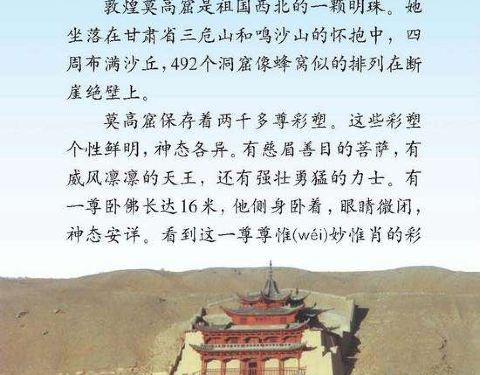 敦煌莫高窟是祖国西北的一颗明珠。她
坐落在甘肃省三危山和鸣沙山的怀抱中，四
周布满沙丘，492个洞窟像蜂窝似的排列在断
崖绝壁上。
莫高窟保存着两千多尊彩塑。这些彩塑
个性鲜明，神态各异。有慈眉善目的菩萨，有
威风凛凛的天王，还有强壮勇猛的力士。有
一尊卧佛长达16米，他侧身卧着，眼睛微闭，
神态安详。看到这一尊尊惟(wéi)妙惟肖的彩